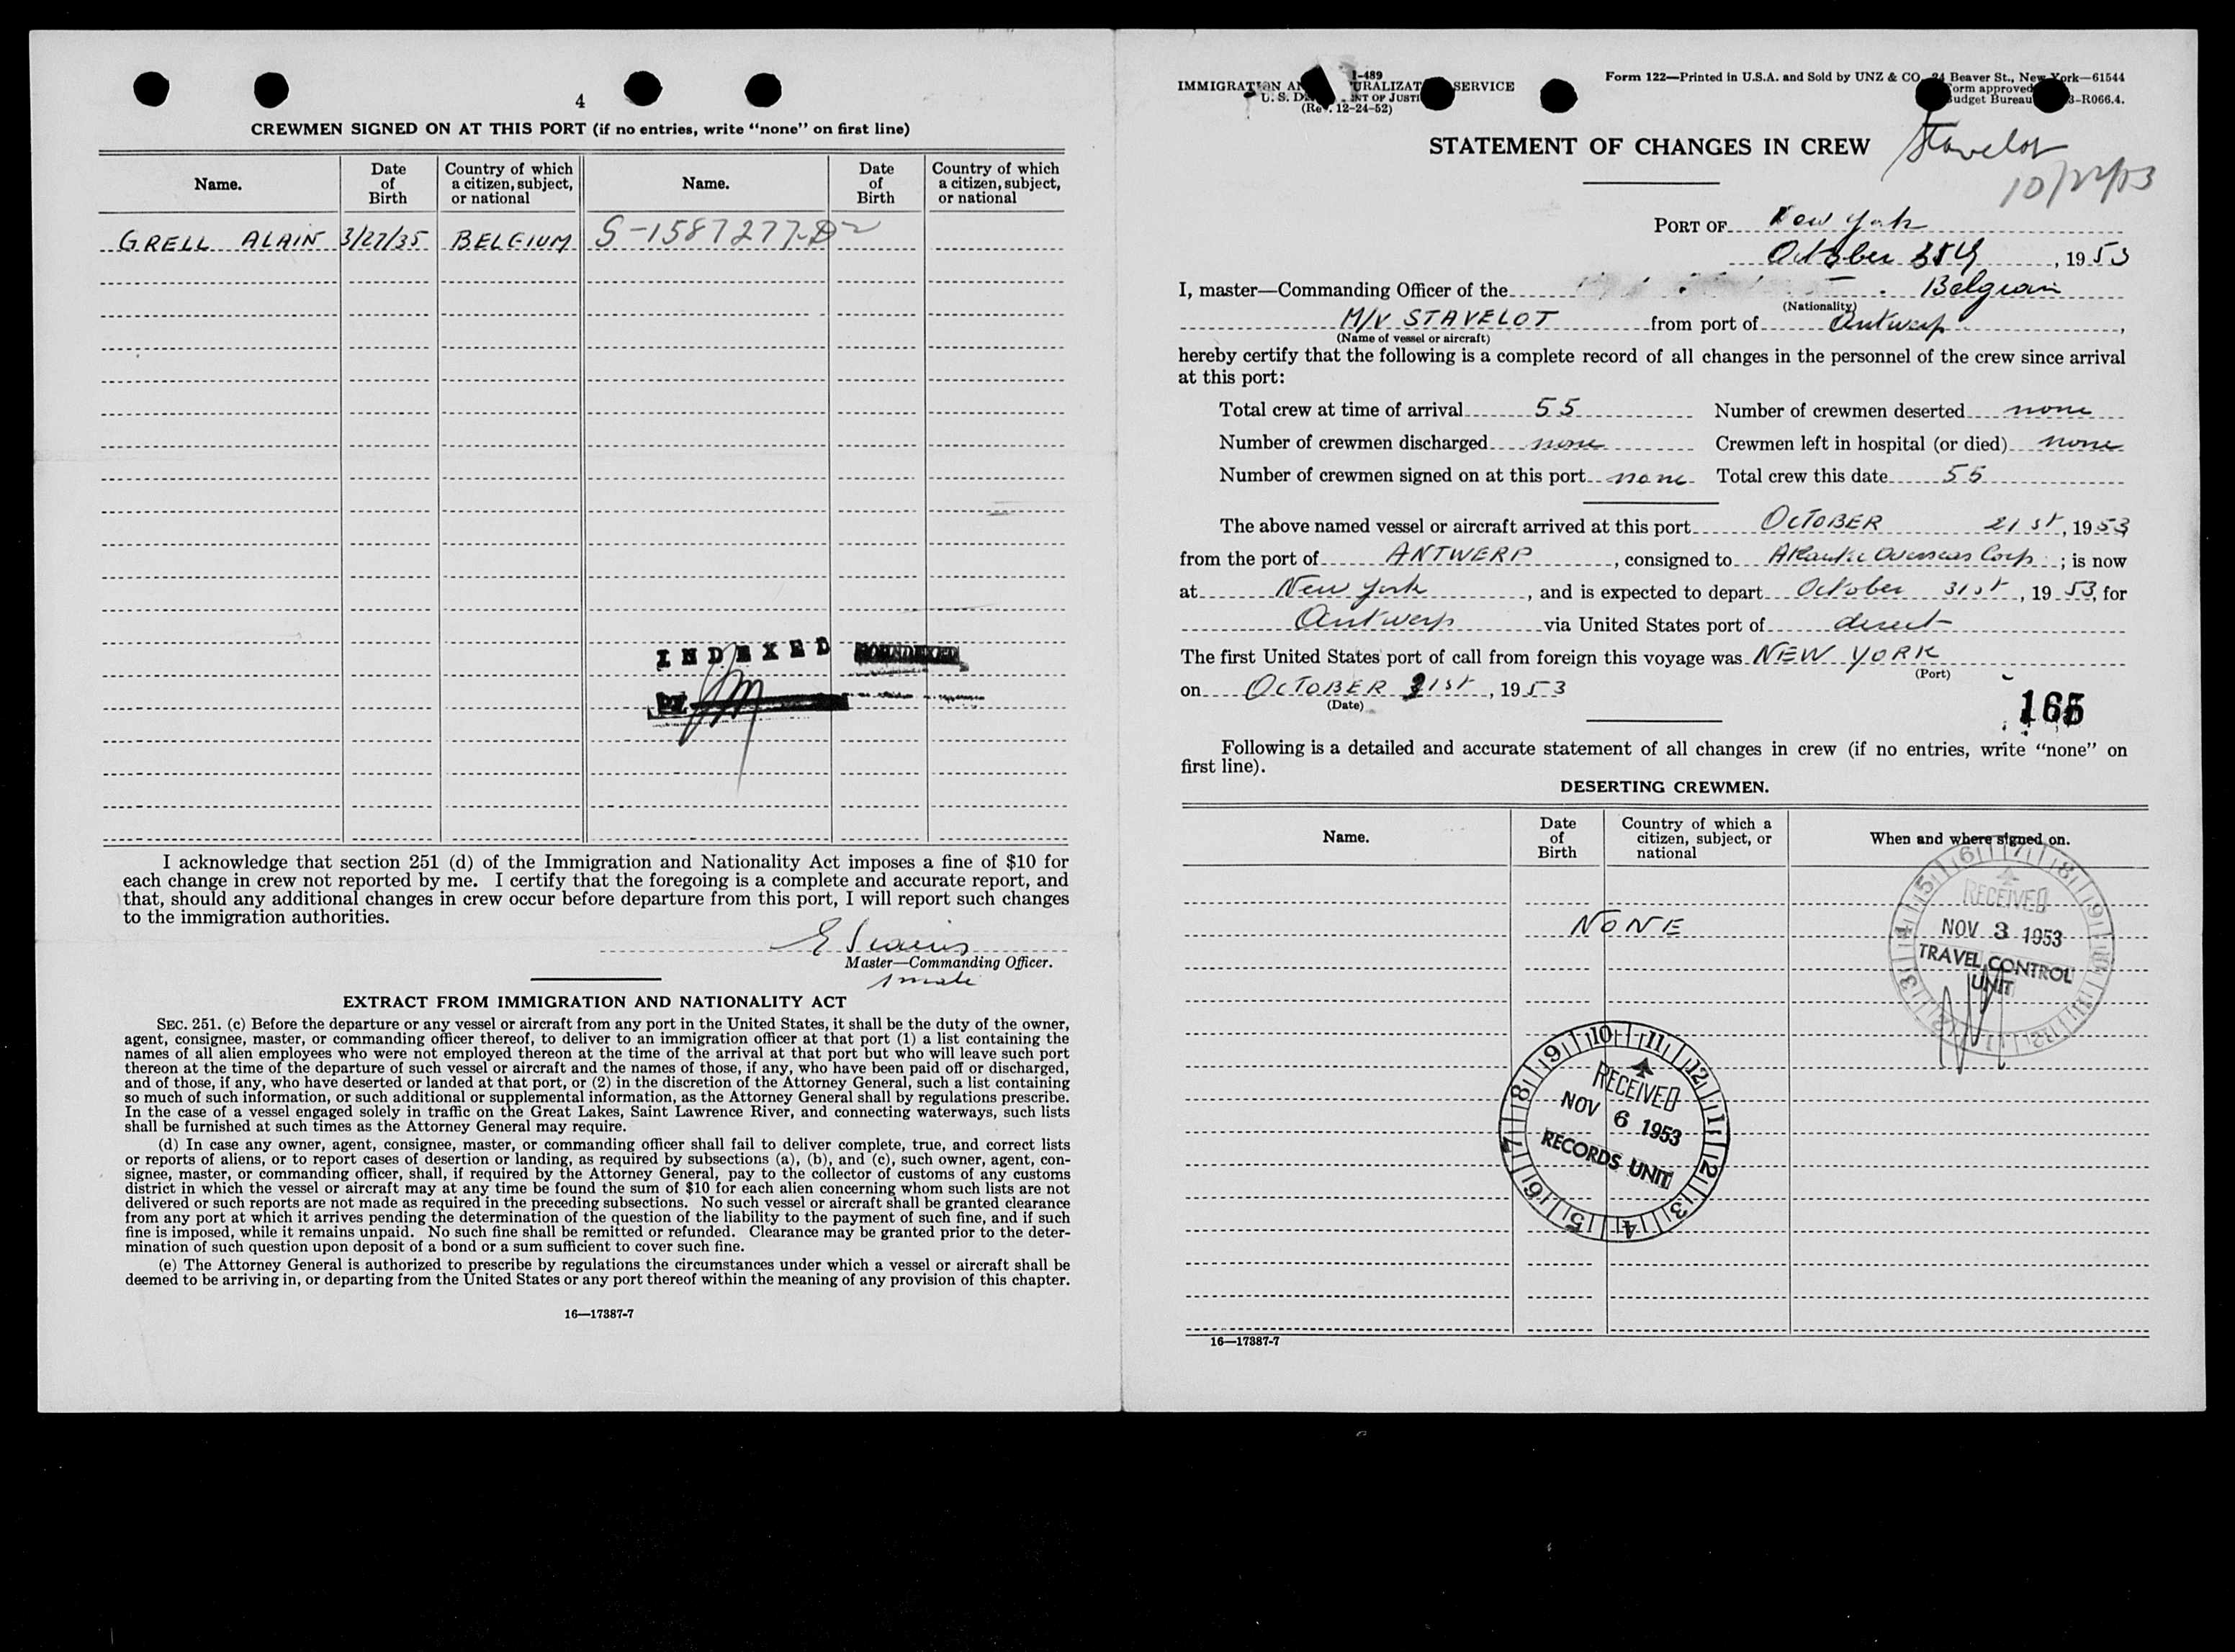 4
CREWMEN SIGNED ON AT THIS PORT (if no entries, write "none" on first line)
Name.
Date of Birth
Country of which a citizen, subject, or national
Name.
Date of Birth
Country of which a citizen, subject, or national
GRELL ALAIN 3/27/35 BELGIUM S-1587277-D
INDEXED
I acknowledge that section 251 (d) of the Immigration and Nationality Act imposes a fine of $10 for
each change in crew not reported by me. I certify that the foregoing is a complete and accurate report, and
that, should any additional changes in crew occur before departure from this port, I will report such changes
to the immigration authorities.
Master—Commanding Officer.
EXTRACT FROM IMMIGRATION AND NATIONALITY ACT
SEC. 251. (c) Before the departure or any vessel or aircraft from any port in the United States, it shall be the duty of the owner,
agent, consignee, master, or commanding officer thereof, to deliver to an immigration officer at that port (1) a list containing the
names of all alien employees who were not employed thereon at the time of the arrival at that port but who will leave such port
thereon at the time of the departure of such vessel or aircraft and the names of those, if any, who have been paid off or discharged,
and of those, if any, who have deserted or landed at that port, or (2) in the discretion of the Attorney General, such a list containing
so much of such information, or such additional or supplemental information, as the Attorney General shall by regulations prescribe.
In the case of a vessel engaged solely in traffic on the Great Lakes, Saint Lawrence River, and connecting waterways, such lists
shall be furnished at such times as the Attorney General may require.
(d) In case any owner, agent, consignee, master, or commanding officer shall fail to deliver complete, true, and correct lists
or reports of aliens, or to report cases of desertion or landing, as required by subsections (a), (b), and (c), such owner, agent, con-
signee, master, or commanding officer, shall, if required by the Attorney General, pay to the collector of customs of any customs
district in which the vessel or aircraft may at any time be found the sum of $10 for each alien concerning whom such lists are not
delivered or such reports are not made as required in the preceding subsections. No such vessel or aircraft shall be granted clearance
from any port at which it arrives pending the determination of the question of the liability to the payment of such fine, and if such
fine is imposed, while it remains unpaid. No such fine shall be remitted or refunded. Clearance may be granted prior to the deter-
mination of such question upon deposit of a bond or a sum sufficient to cover such fine.
(e) The Attorney General is authorized to prescribe by regulations the circumstances under which a vessel or aircraft shall be
deemed to be arriving in, or departing from the United States or any port thereof within the meaning of any provision of this chapter.
16—17387-7
I-489
IMMIGRATION SERVICE
(Rev. 12-24-52)
Form 122—Printed in U.S.A. and Sold by UNZ & CO. 24 Beaver St., New York—61544
STATEMENT OF CHANGES IN CREW
Stavelot
PORT OF New York
October , 1953
I, master—Commanding Officer of the Belgian
(Nationality)
M/V STAVELOT from port of Antwerp,
(Name of vessel or aircraft)
hereby certify that the following is a complete record of all changes in the personnel of the crew since arrival
at this port:
Total crew at time of arrival 55 Number of crewmen deserted none
Number of crewmen discharged none Crewmen left in hospital (or died) none
Number of crewmen signed on at this port none Total crew this date 55
The above named vessel or aircraft arrived at this port OCTOBER 21st, 1953
from the port of ANTWERP, consigned to Atlantic Overseas Corp; is now
at New York, and is expected to depart October 31st, 1953, for
Antwerp via United States port of direct
The first United States port of call from foreign this voyage was NEW YORK
(Port)
on OCTOBER 21st, 1953
(Date)
Following is a detailed and accurate statement of all changes in crew (if no entries, write "none" on
first line).
DESERTING CREWMEN.
Name.
Date of Birth
Country of which a citizen, subject, or national
When and where signed on.
NONE
RECEIVED
NOV 3 1953
TRAVEL CONTROL
UNIT
RECEIVED
NOV 6 1953
RECORDS UNIT
16—17387-7